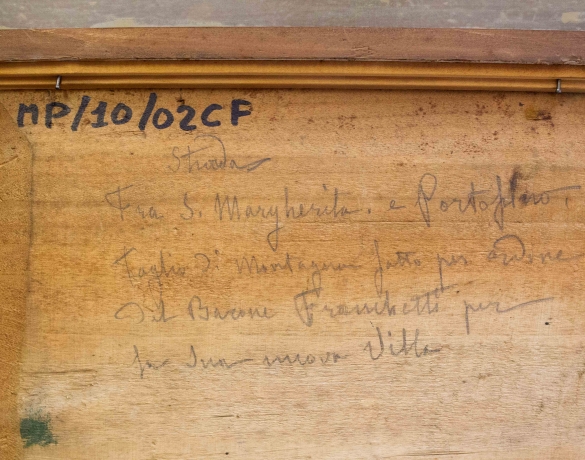 MP/10/02CF
Strada
Fra S. Margherita. e Portofino,
Taglio di Montagna fatto per ordine
del Barone Franchetti per
la sua nuova Villa